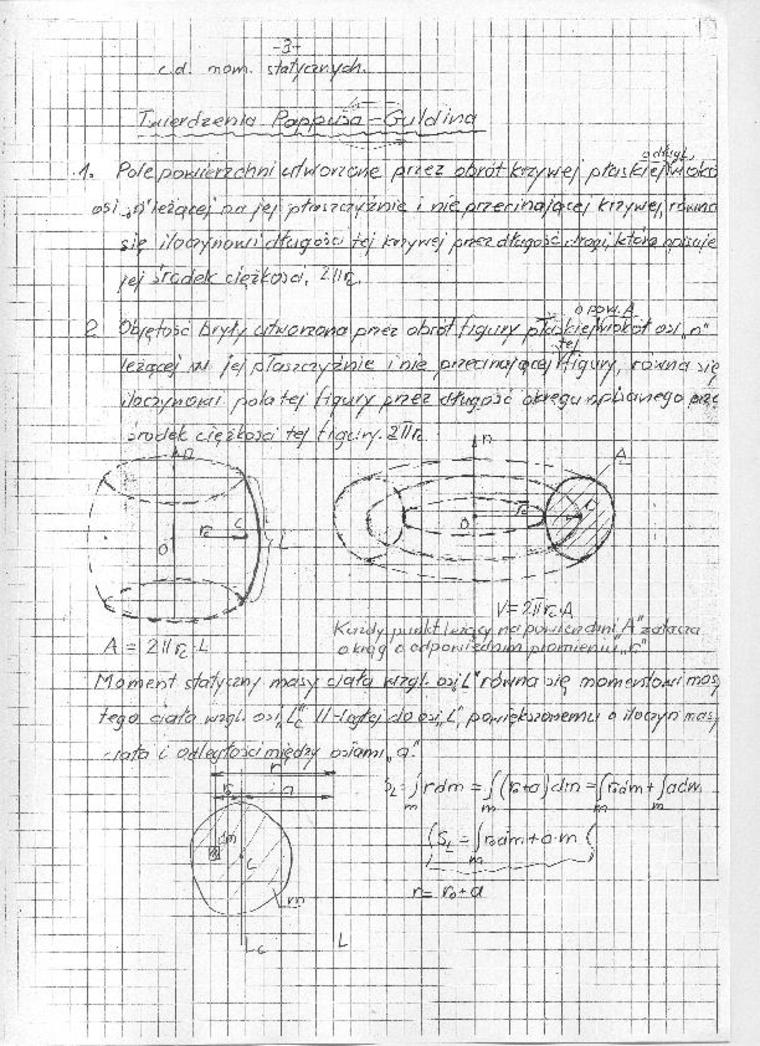 -3-
c.d. mom. statycznych.
Twierdzenia Pappusa-Guldina
1. Pole powierzchni utworzone przez obrót krzywej płaskiej o długL, wokół
osi „n" leżącej na jej płaszczyźnie i nie przecinającej krzywej, równa
się iloczynowi długości tej krzywej przez długość drogi, którą opisuje
jej środek ciężkości, 2Πrc.
2 Objętość bryły utworzona przez obrót figury płaskiej o pow. A wokół osi „n"
leżącej w jej płaszczyźnie i nie przecinającej tej figury, równa się
iloczynowi pola tej figury przez długość okręgu opisanego prze
środek ciężkości tej figury. 2Πrc
n
n
A
rc
C
L
O
O
rc
C
V = 2Πrc·A
A = 2Πrc·L
Każdy punkt leżący na powierzchni „A" zatacza
okrąg o odpowiednim promieniu „r"
Moment statyczny masy ciała wzgl. osi „L" równa się momentowi masy
tego ciała wzgl. osi „Lc" II-ległej do osi „L", powiększonemu o iloczyn masy
ciała i odległości między osiami „a".
r
r₀
a
dm
C
m
Lc
L
SL = ∫m r dm = ∫m (r₀+a) dm = ∫m r₀ dm + ∫m a dm
SL = ∫m r₀ dm + a·m
r = r₀ + a